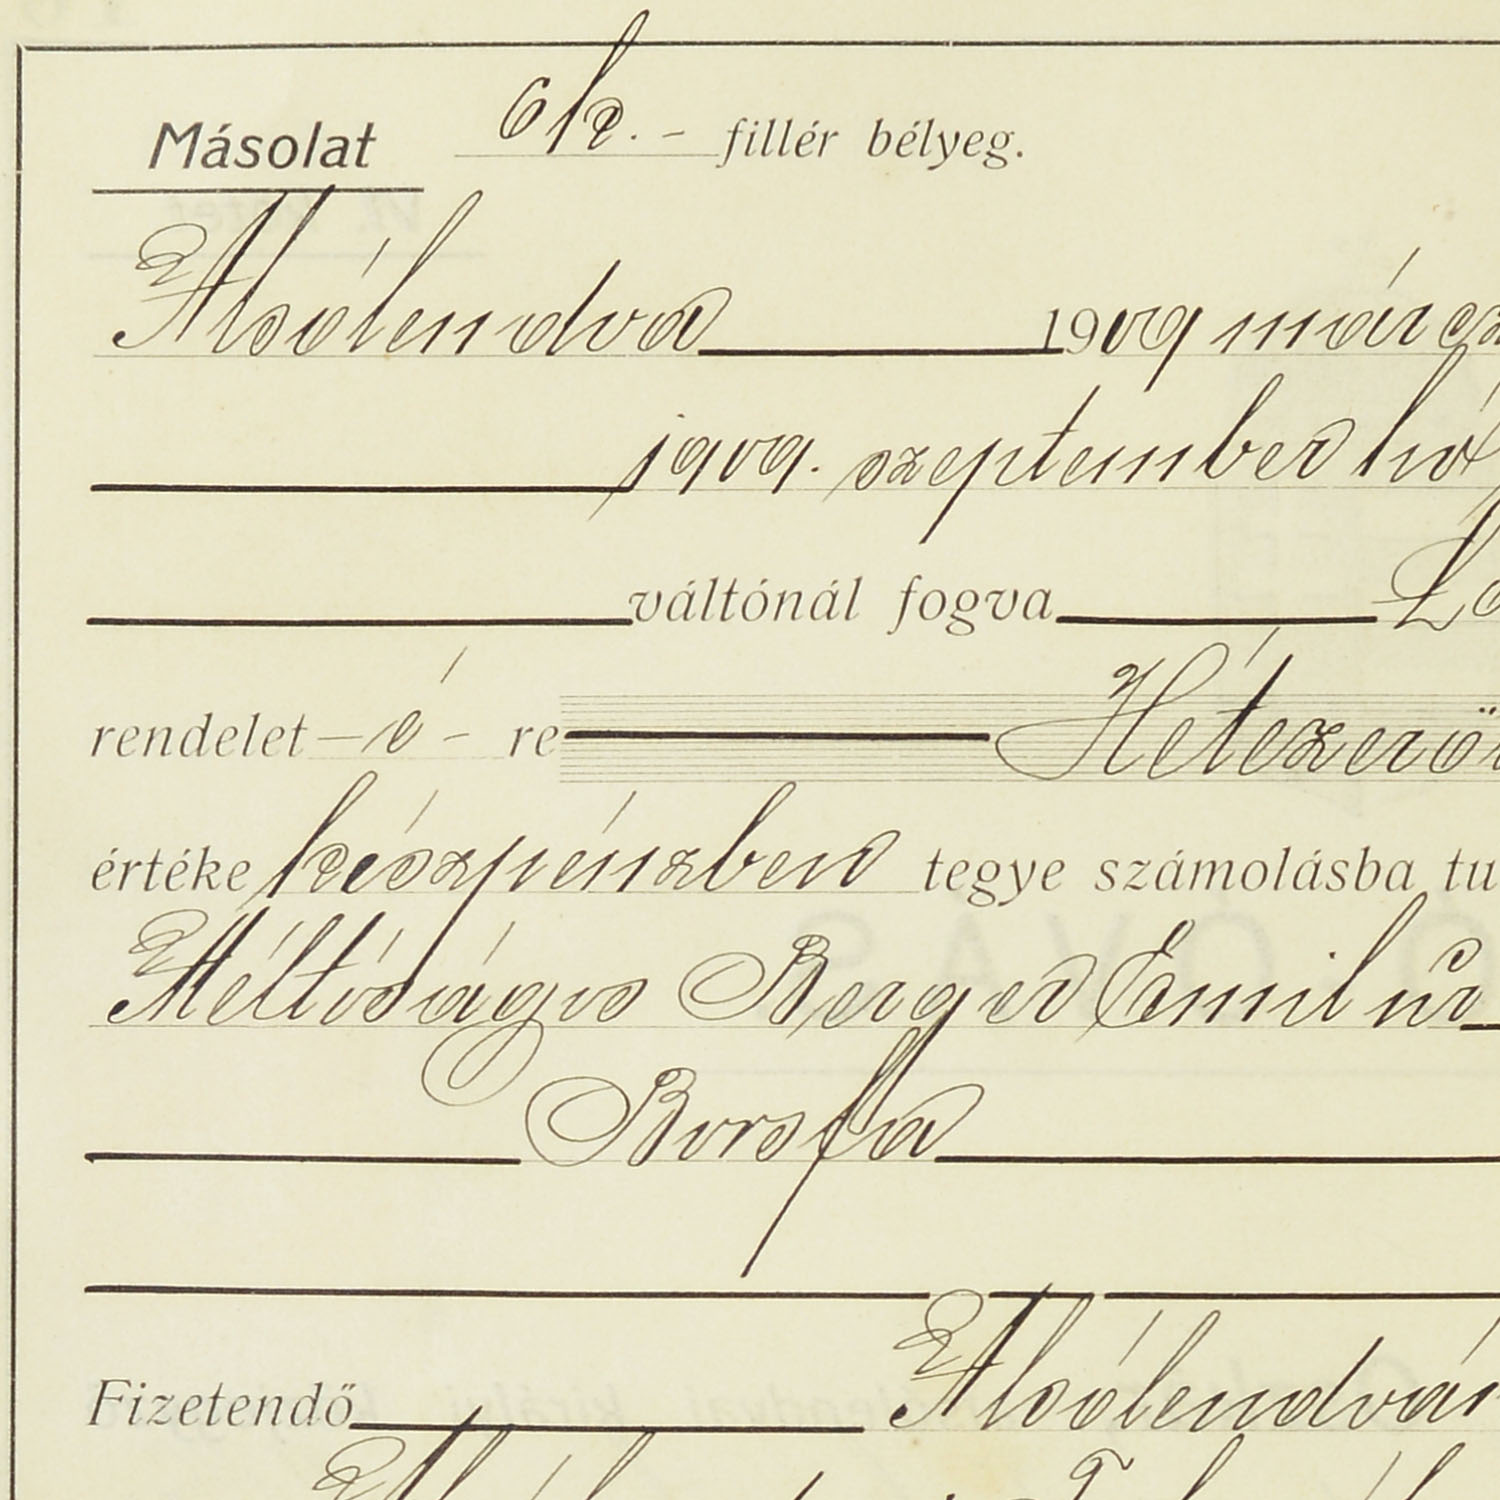 Másolat 6 k. - fillér bélyeg.
Alsólendva 1909 márcz
1909. szeptember hó
váltónál fogva
rendelet - é - re Hétezerö
értéke készpénzben tegye számolásba tu
Méltóságos Berger Emil úr
Borsfa
Fizetendő Alsólendván